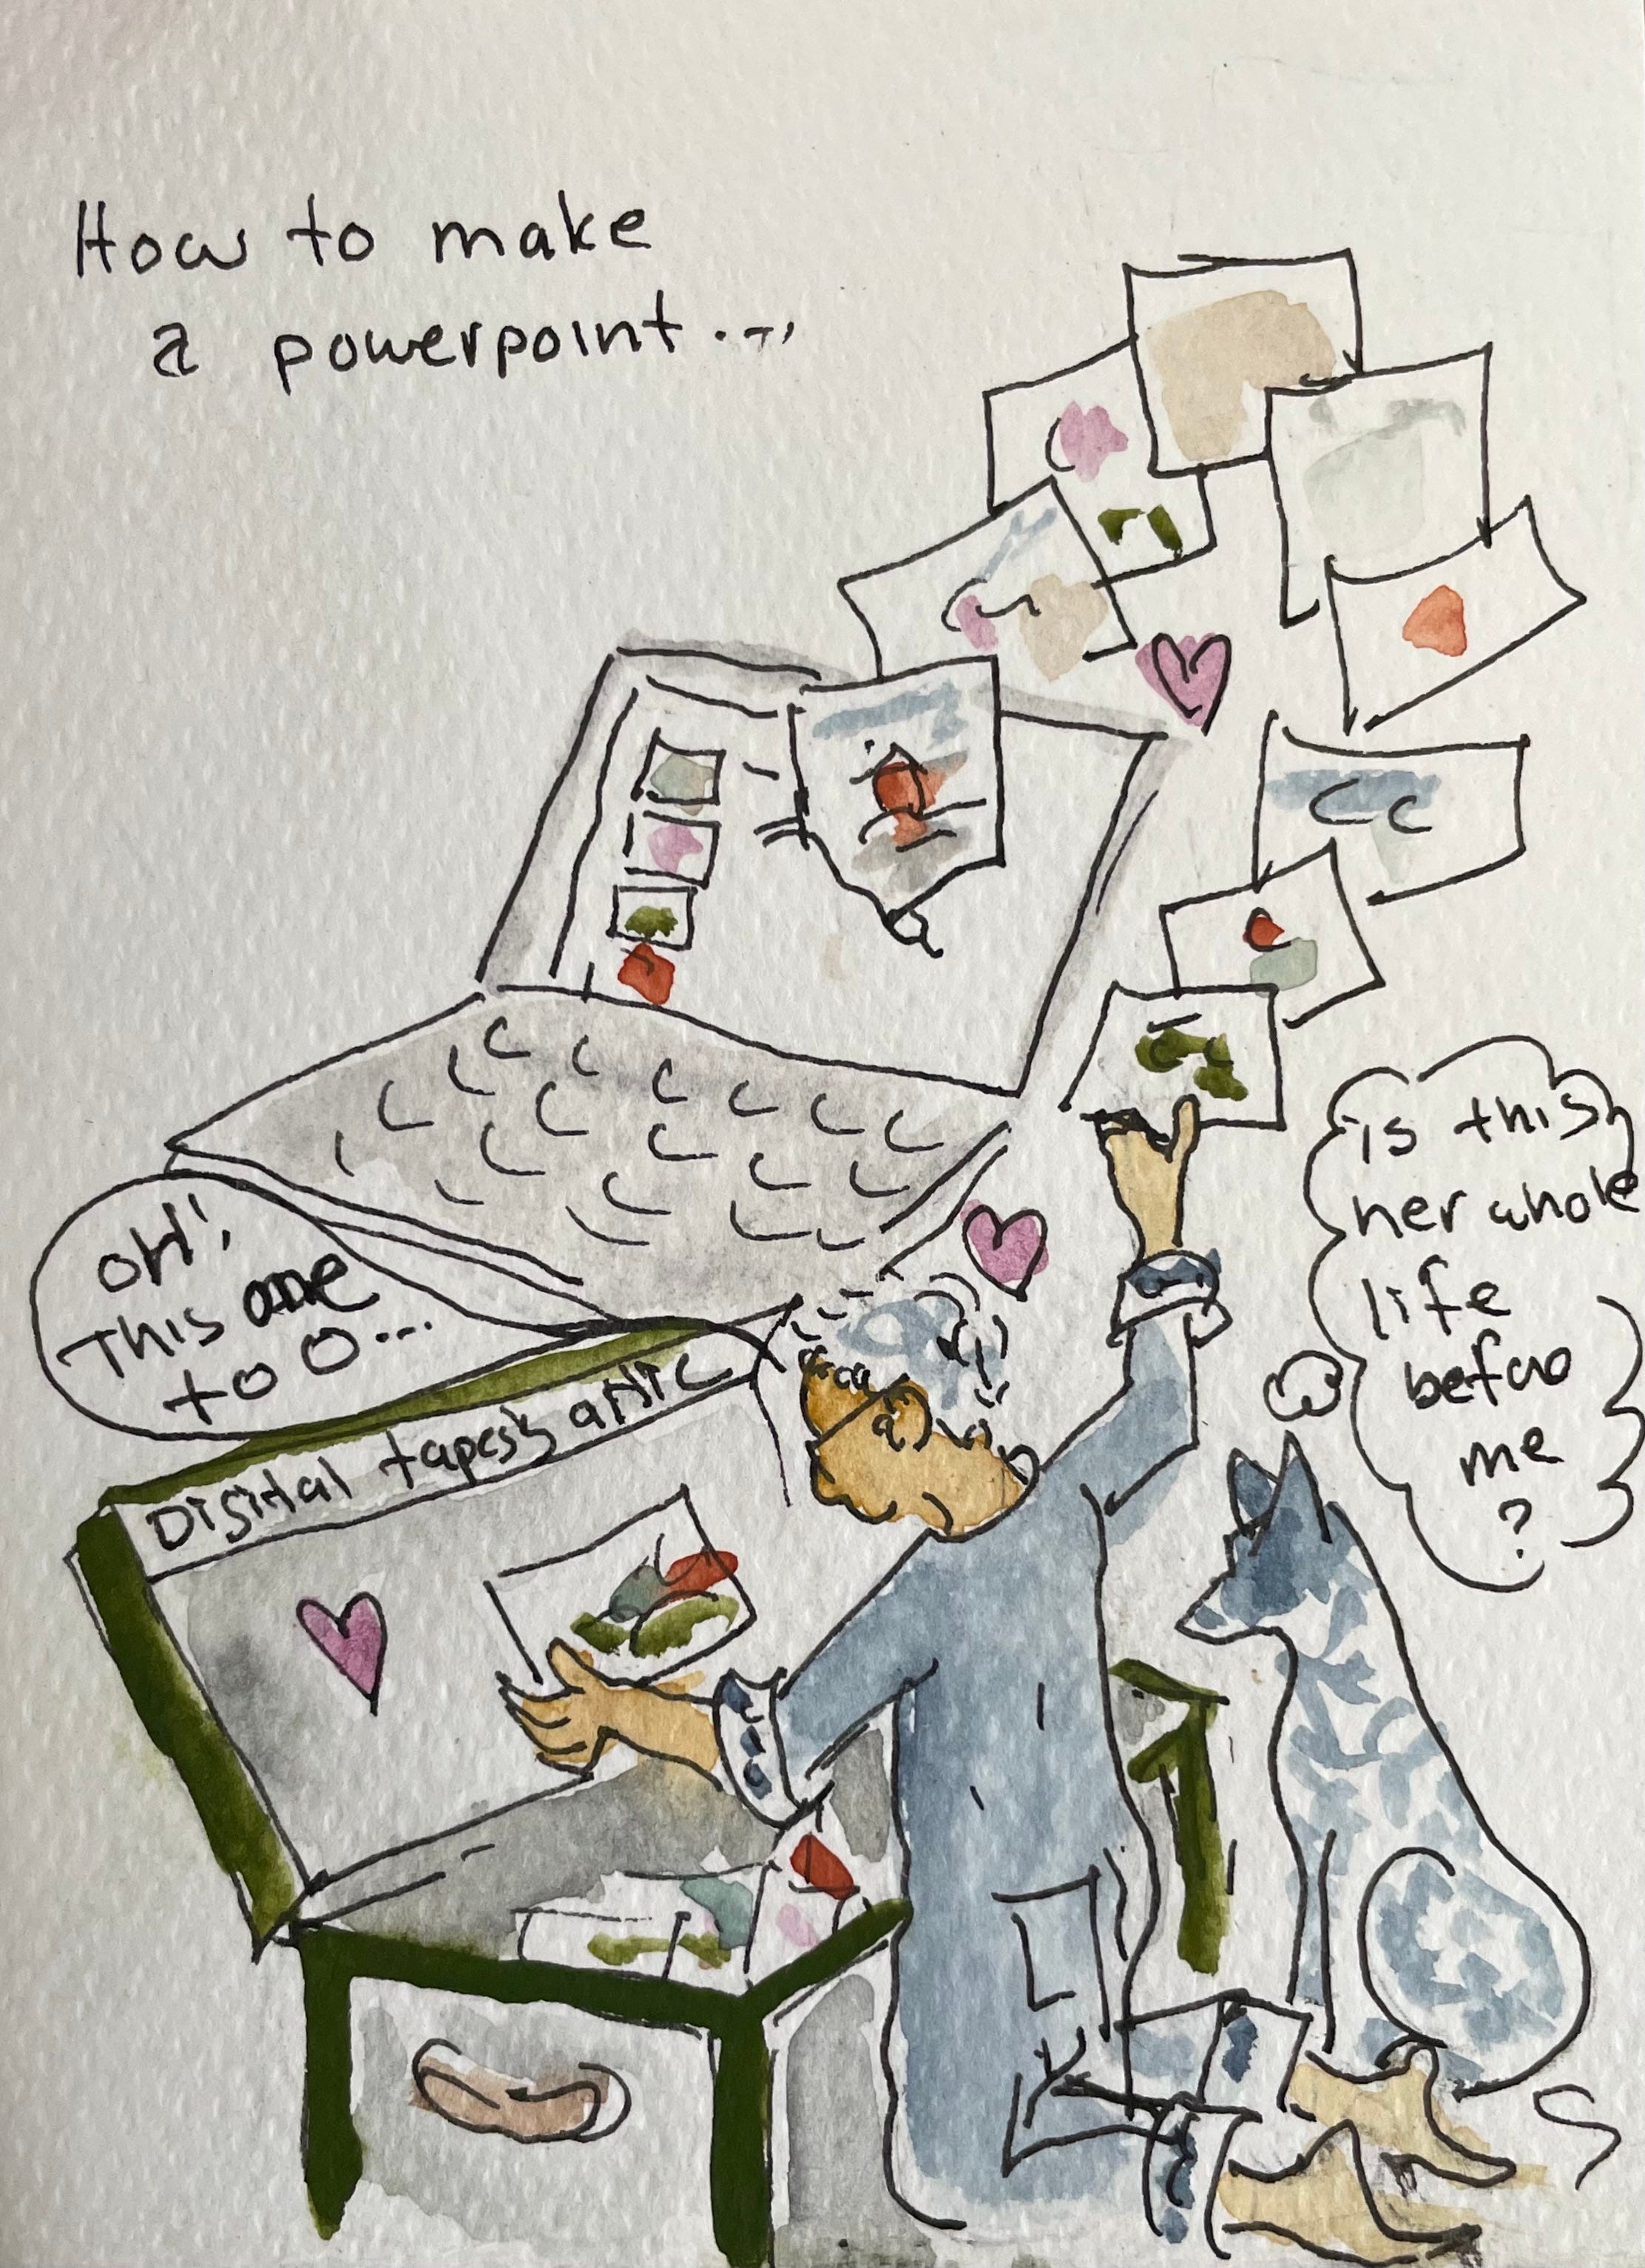 How to make
a powerpoint...
OH!
This one
too...
Digital tapestry attic
is this
her whole
life
before
me
?